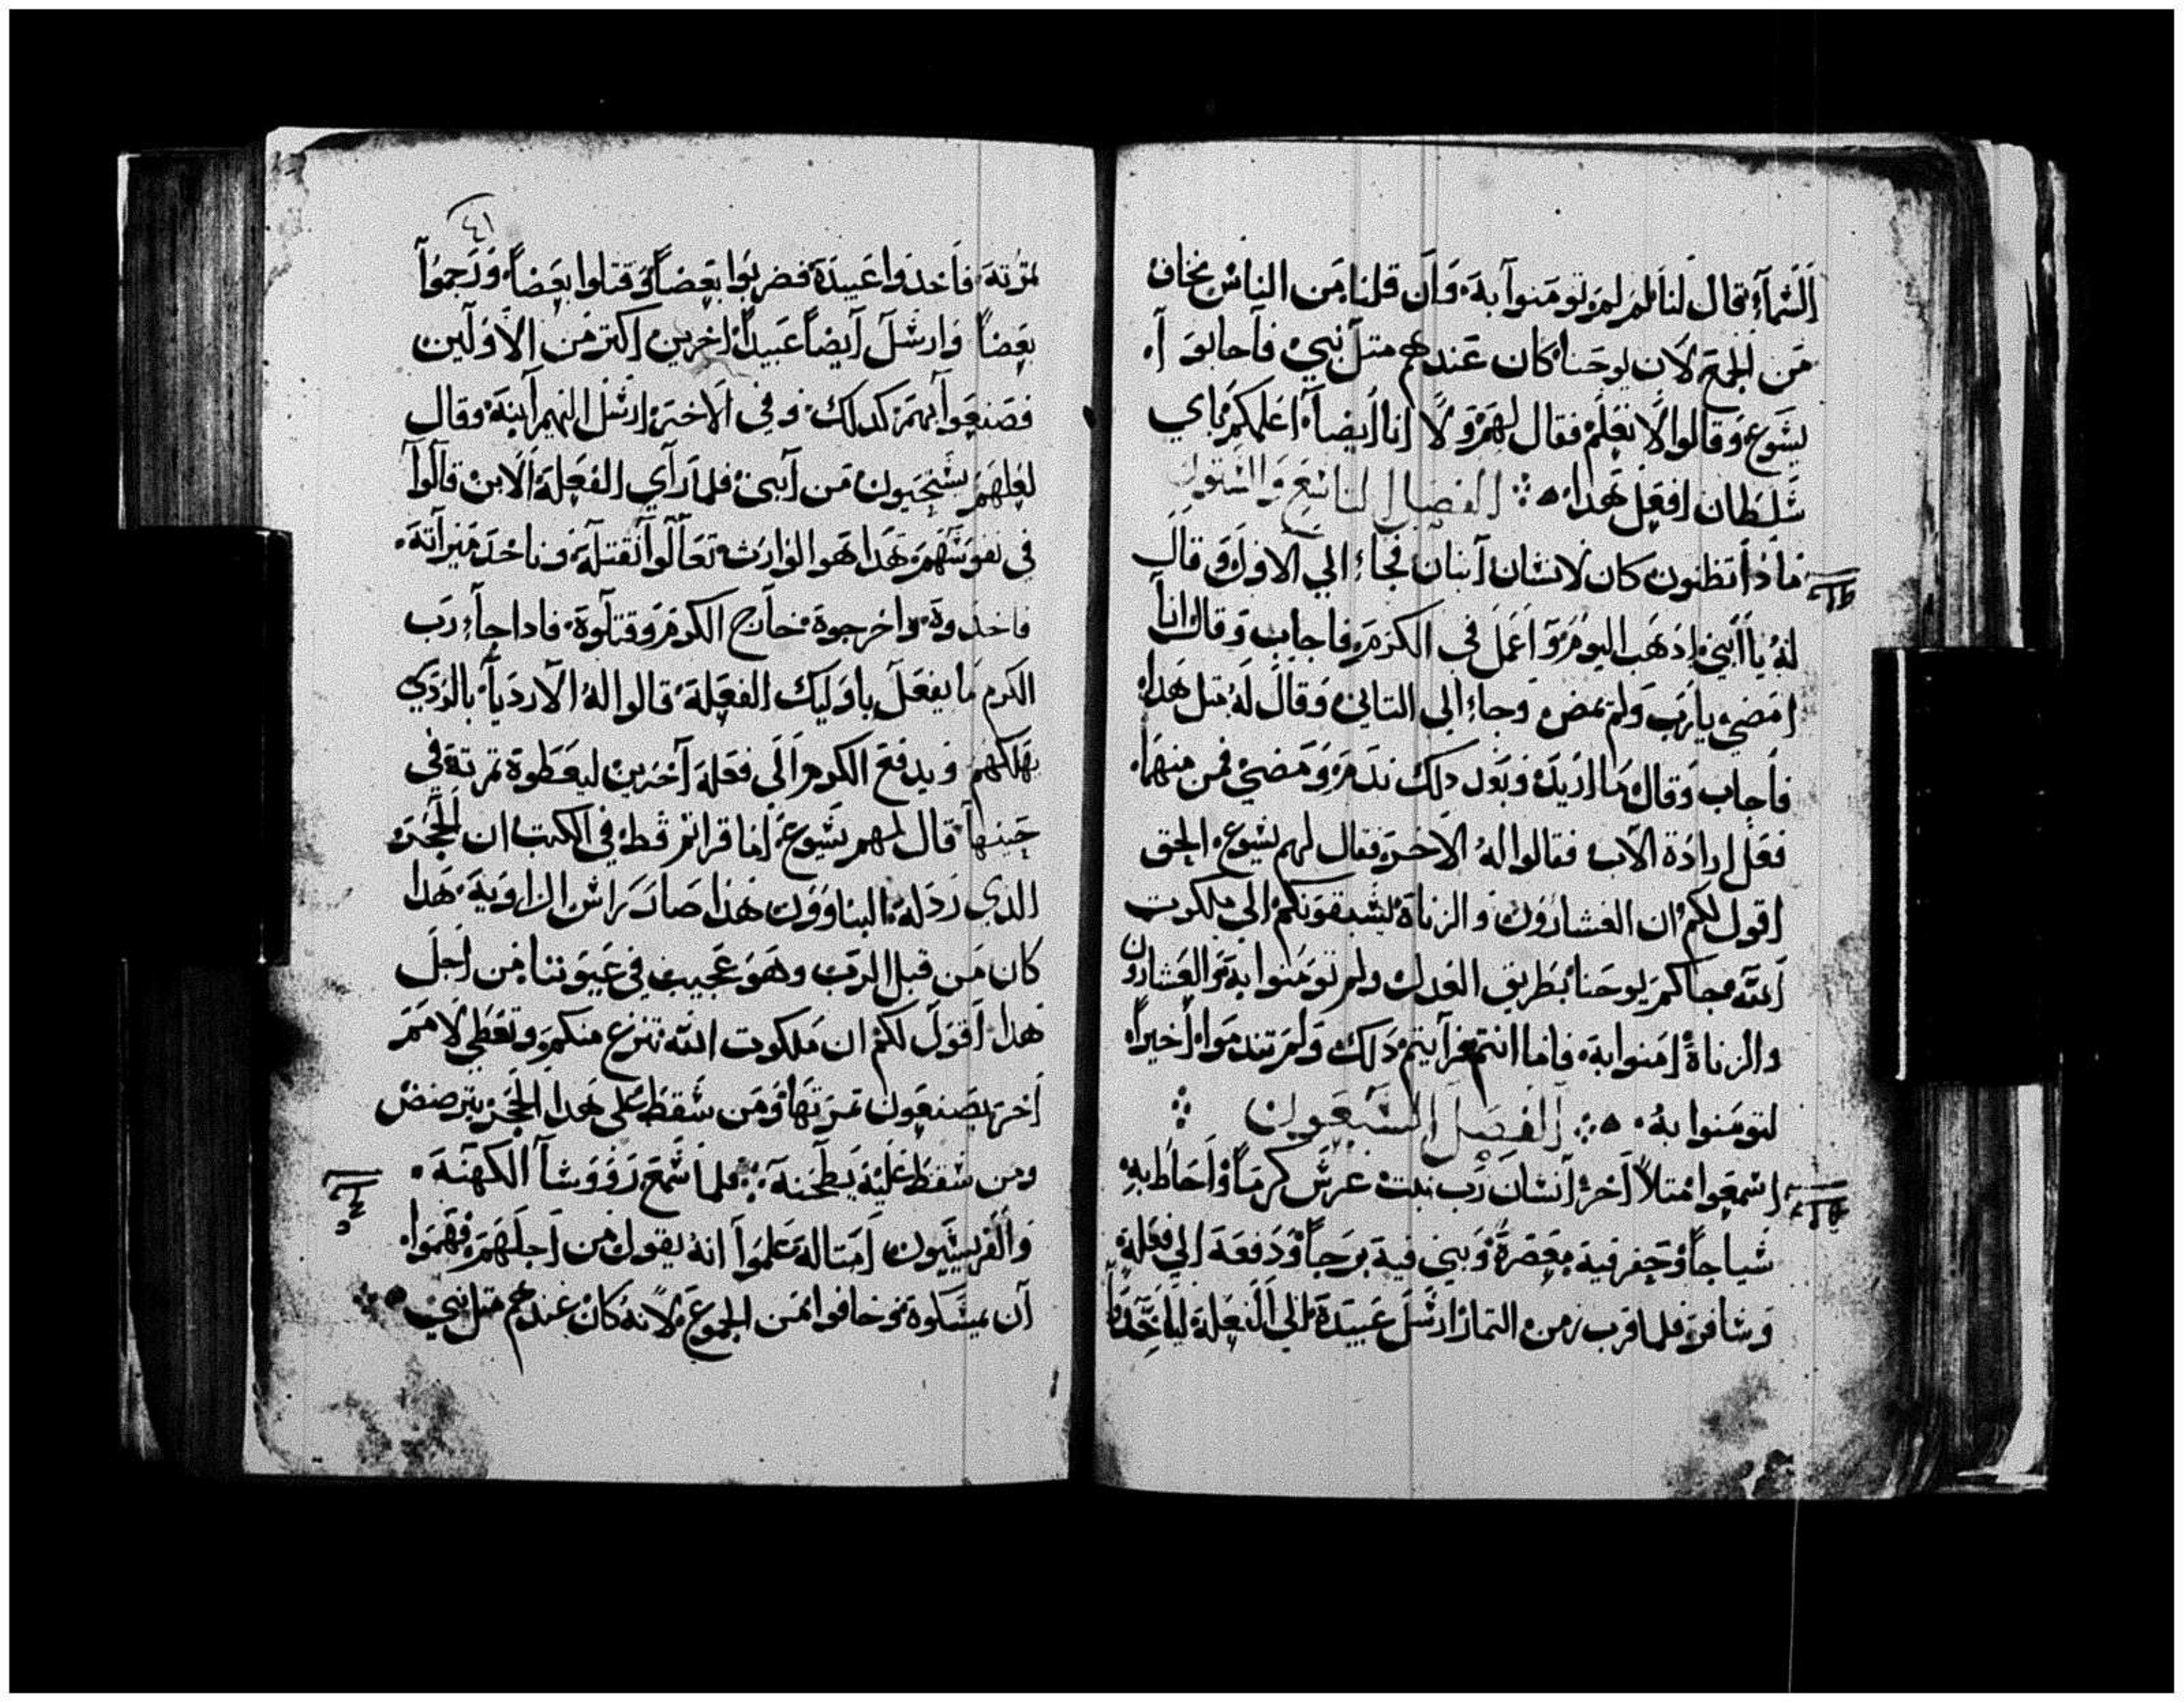 السمآء يقال لنا لم لم تومنوا به وان قلنا من الناس نخاف
من الجمع لان يوحنا كان عندهم متل نبي فاجابوا
يشوع وقالوا لا نعلم فقال لهم ولا انا ايضا اعلمكم باي
شلطان افعل هدا الفصل التاشع والشتون
مادا تظنون كان لانشان ابنان فجاء الي الاول وقال
له يا ابني ادهب اليوم واعمل في الكرم فاجاب وقال انا
امضي يارب ولم يمض وجاء الي التاني وقال له متل هدا
فاجاب وقال ما اريد وبعد دلك ندم ومضي فمن منهما
فعل ارادة الاب فقالوا له الاخر فقال لهم يشوع الحق
اقول لكم ان العشارون والزناة يشبقونكم الي ملكوت
الله جاكم يوحنا بطريق العدل ولم تومنوا به والعشارون
والزناة امنوا به فاما انتم فرايتم دلك ولم تندموا اخيرا
لتومنوا به الفصل الشبعون
اشمعوا متلا اخر انشان رب بيت غرش كرما واحاط به
شياجا وحفر فيه معصرة وبني فيه برجا ودفعه الي فعلة
وشافر فلما قرب زمن التمار ارشل عبيده الي الفعلة لياخدوا
٤١
تمرته فاخدوا عبيده فضربوا بعضا وقتلوا بعضا ورجموا
بعضا وارشل ايضا عبيدا اخرين اكتر من الاولين
فصنعوا بهم كدلك وفي الاخر ارشل اليهم ابنه وقال
لعلهم يشتحيون من ابني فلما راي الفعلة الابن قالوا
في نفوشهم هدا هو الوارث تعالوا نقتله وناخد ميراته
فاخدوه واخرجوه خارج الكرم وقتلوه فادا جاء رب
الكرم ما يفعل باوليك الفعلة قالوا له الارديا بالردي
يهلكهم ويدفع الكرم الي فعلة اخرين ليعطوه تمرته في
حينها قال لهم يشوع اما قراتم قط في الكتب ان الحجر
الدي ردله البناوون هدا صار راش الزاوية هدا
كان من قبل الرب وهو عجيب في عيوننا من اجل
هدا اقول لكم ان ملكوت الله تنزع منكم وتعطي لامم
اخر يصنعون تمرتها ومن شقط علي هدا الحجر يترضض
ومن شقط عليه يطحنه فلما شمع روشا الكهنة
والفريشيون امتاله علموا انه يقول من اجلهم فهموا
ان يمشكوه وخافوا من الجموع لانه كان عندهم متل نبي